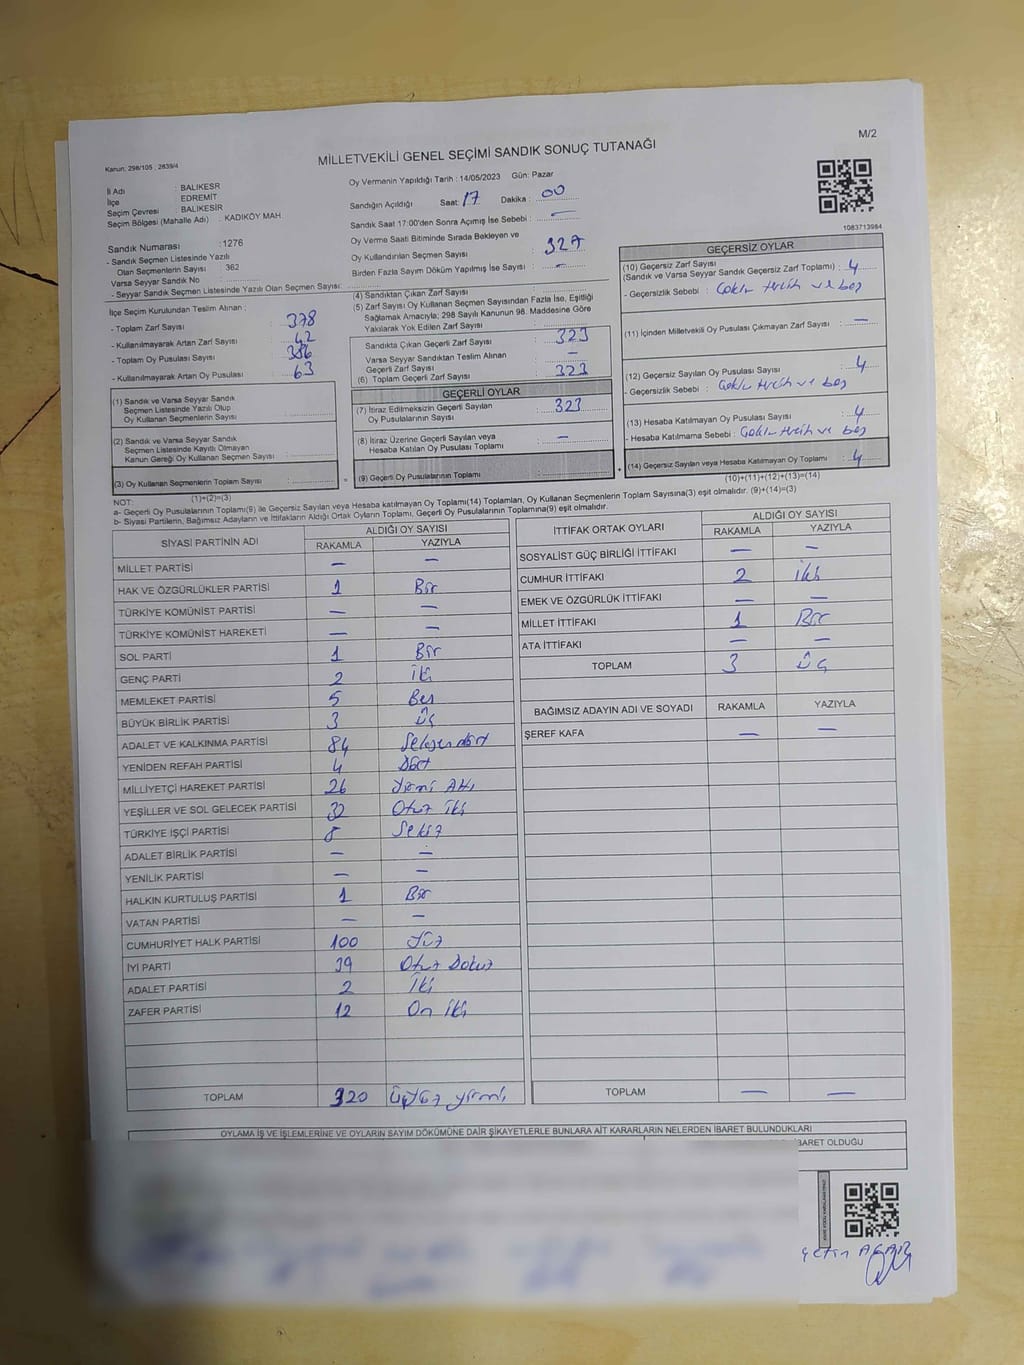 M/2
Kanun: 298/105 , 2839/4
MİLLETVEKİLİ GENEL SEÇİMİ SANDIK SONUÇ TUTANAĞI
İl Adı : BALIKESR
İlçe EDREMİT
Seçim Çevresi : BALIKESİR
Seçim Bölgesi (Mahalle Adı) : KADIKÖY MAH.
Sandık Numarası : 1276
- Sandık Seçmen Listesinde Yazılı
Olan Seçmenlerin Sayısı : 362
Varsa Seyyar Sandık No
- Seyyar Sandık Seçmen Listesinde Yazılı Olan Seçmen Sayısı:
Oy Vermenin Yapıldığı Tarih : 14/05/2023 Gün: Pazar
Sandığın Açıldığı Saat: 17 Dakika : 00
Sandık Saat 17:00'den Sonra Açımış İse Sebebi : —
Oy Verme Saati Bitiminde Sırada Bekleyen ve
Oy Kullandırılan Seçmen Sayısı : 327
Birden Fazla Sayım Döküm Yapılmış İse Sayısı : —
1083713984
İlçe Seçim Kurulundan Teslim Alınan :
- Toplam Zarf Sayısı : 378
- Kullanılmayarak Artan Zarf Sayısı : 42
- Toplam Oy Pusulası Sayısı : 386
- Kullanılmayarak Artan Oy Pusulası : 63
(1) Sandık ve Varsa Seyyar Sandık
Seçmen Listesinde Yazılı Olup
Oy Kullanan Seçmenlerin Sayısı :
(2) Sandık ve Varsa Seyyar Sandık
Seçmen Listesinde Kayıtlı Olmayan
Kanun Gereği Oy Kullanan Seçmen Sayısı :
(3) Oy Kullanan Seçmenlerin Toplam Sayısı :
(1)+(2)=(3)
(4) Sandıktan Çıkan Zarf Sayısı :
(5) Zarf Sayısı Oy Kullanan Seçmen Sayısından Fazla İse, Eşitliği
Sağlamak Amacıyla; 298 Sayılı Kanunun 98. Maddesine Göre
Yakılarak Yok Edilen Zarf Sayısı :
Sandıkta Çıkan Geçerli Zarf Sayısı : 323
Varsa Seyyar Sandıktan Teslim Alınan
Geçerli Zarf Sayısı : —
(6) Toplam Geçerli Zarf Sayısı : 323
GEÇERLİ OYLAR
(7) İtiraz Edilmeksizin Geçerli Sayılan
Oy Pusulalarının Sayısı : 323
(8) İtiraz Üzerine Geçerli Sayılan veya
Hesaba Katılan Oy Pusulası Toplamı : —
(9) Geçerli Oy Pusulalarının Toplamı :
GEÇERSİZ OYLAR
(10) Geçersiz Zarf Sayısı
(Sandık ve Varsa Seyyar Sandık Geçersiz Zarf Toplamı) : 4
- Geçersizlik Sebebi : Çoklu tercih ve boş
(11) İçinden Milletvekili Oy Pusulası Çıkmayan Zarf Sayısı : —
(12) Geçersiz Sayılan Oy Pusulası Sayısı : 4
- Geçersizlik Sebebi : Çoklu tercih ve boş
(13) Hesaba Katılmayan Oy Pusulası Sayısı : 4
- Hesaba Katılmama Sebebi : Çoklu tercih ve boş
(14) Geçersiz Sayılan veya Hesaba Katılmayan Oy Toplamı : 4
(10)+(11)+(12)+(13)=(14)
NOT:
a- Geçerli Oy Pusulalarının Toplamı(9) ile Geçersiz Sayılan veya Hesaba katılmayan Oy Toplamı(14) Toplamları, Oy Kullanan Seçmenlerin Toplam Sayısına(3) eşit olmalıdır. (9)+(14)=(3)
b- Siyasi Partilerin, Bağımsız Adayların ve İttifakların Aldığı Ortak Oyların Toplamı, Geçerli Oy Pusulalarının Toplamına(9) eşit olmalıdır.
SİYASİ PARTİNİN ADI ALDIĞI OY SAYISI
RAKAMLA YAZIYLA
MİLLET PARTİSİ — —
HAK VE ÖZGÜRLÜKLER PARTİSİ 1 Bir
TÜRKİYE KOMÜNİST PARTİSİ — —
TÜRKİYE KOMÜNİST HAREKETİ — —
SOL PARTİ 1 Bir
GENÇ PARTİ 2 İki
MEMLEKET PARTİSİ 5 Beş
BÜYÜK BİRLİK PARTİSİ 3 üç
ADALET VE KALKINMA PARTİSİ 84 Seksen dört
YENİDEN REFAH PARTİSİ 4 Dört
MİLLİYETÇİ HAREKET PARTİSİ 26 Yirmi Altı
YEŞİLLER VE SOL GELECEK PARTİSİ 32 Otuz İki
TÜRKİYE İŞÇİ PARTİSİ 8 Sekiz
ADALET BİRLİK PARTİSİ — —
YENİLİK PARTİSİ — —
HALKIN KURTULUŞ PARTİSİ 1 Bir
VATAN PARTİSİ — —
CUMHURİYET HALK PARTİSİ 100 Yüz
İYİ PARTİ 39 Otuz Dokuz
ADALET PARTİSİ 2 İki
ZAFER PARTİSİ 12 On İki
TOPLAM 320 üçyüz yirmi
İTTİFAK ORTAK OYLARI ALDIĞI OY SAYISI
RAKAMLA YAZIYLA
SOSYALİST GÜÇ BİRLİĞİ İTTİFAKI — —
CUMHUR İTTİFAKI 2 iki
EMEK VE ÖZGÜRLÜK İTTİFAKI — —
MİLLET İTTİFAKI 1 Bir
ATA İTTİFAKI — —
TOPLAM 3 üç
BAĞIMSIZ ADAYIN ADI VE SOYADI RAKAMLA YAZIYLA
ŞEREF KAFA — —
TOPLAM — —
OYLAMA İŞ VE İŞLEMLERİNE VE OYLARIN SAYIM DÖKÜMÜNE DAİR ŞİKAYETLERLE BUNLARA AİT KARARLARIN NELERDEN İBARET BULUNDUKLARI
İBARET OLDUĞU